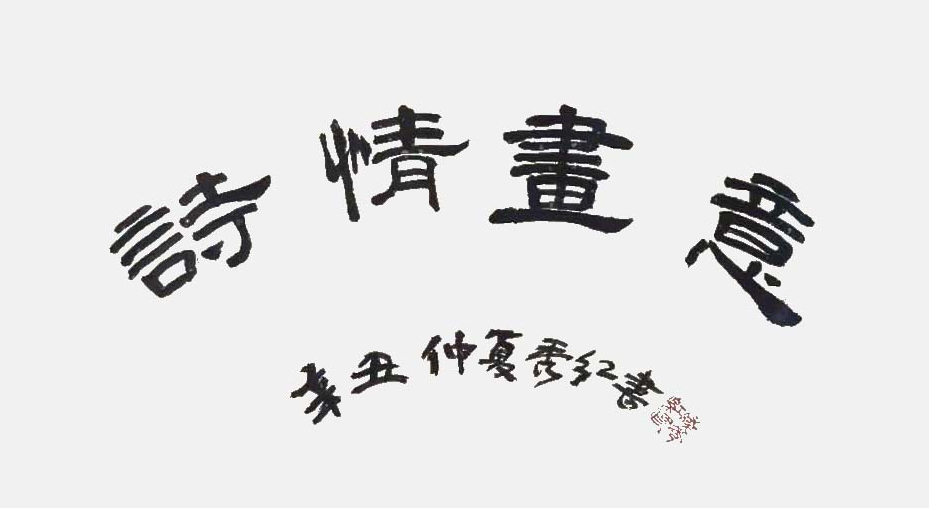 詩情畫意
辛丑仲夏秀红書